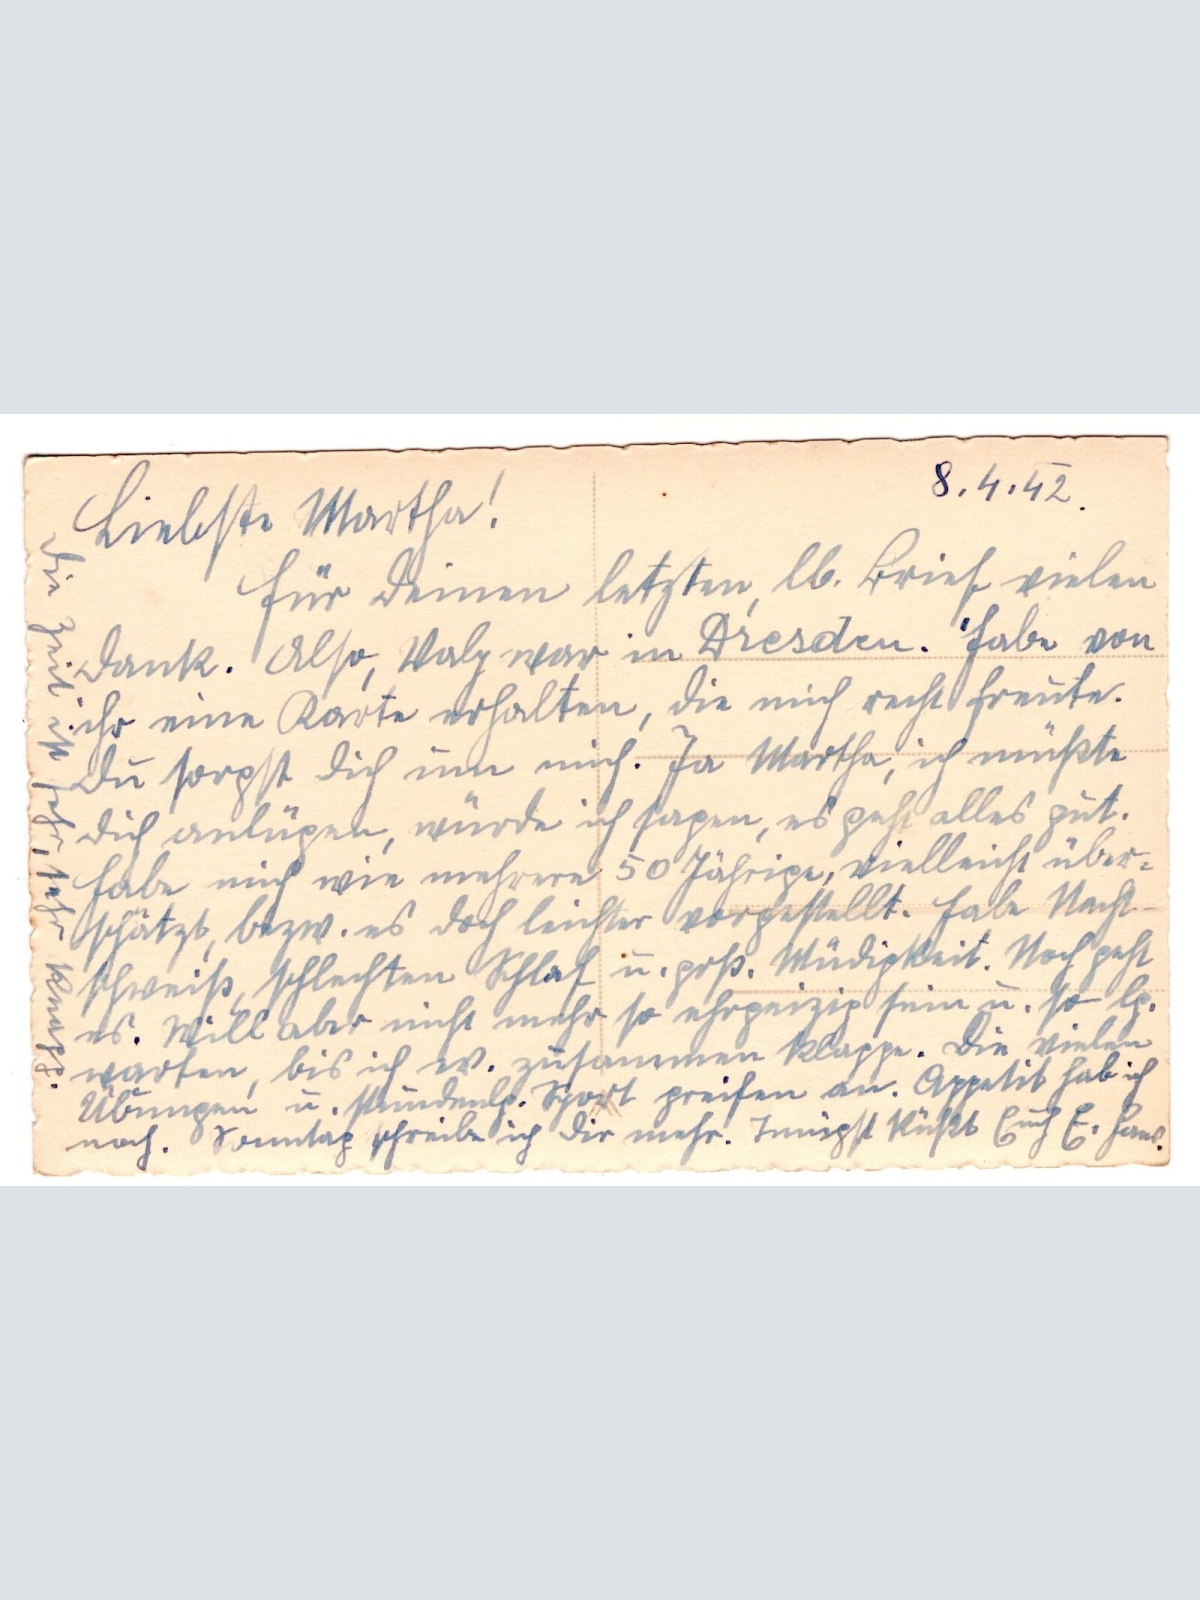 8.4.42.
Liebste Martha!
Für Deinen letzten, lb. Brief vielen
Dank. Also, Waly war in Dresden. Habe von
ihr eine Karte erhalten, die mich recht freute.
Du sorgst Dich um mich. Ja Martha, ich müßte
Dich anlügen, würde ich sagen, es geht alles gut.
Habe mich wie mehrere 50 Jährige, vielleicht über-
schätzt, bezw. es doch leichter vorgestellt. Habe Nacht-
schweiß, schlechten Schlaf u. groß. Müdigkeit. Noch geht
es. Will aber nicht mehr so ehrgeizig sein u. so lg.
warten, bis ich w. zusammen klappe. Die vielen
Übungen u. stundenlg. Sport greifen an. Appetit hab ich
noch. Sonntag schreibe ich Dir mehr. Innigst küßt Euch E. Hans.
Die Zeit ist sehr, sehr knapp.